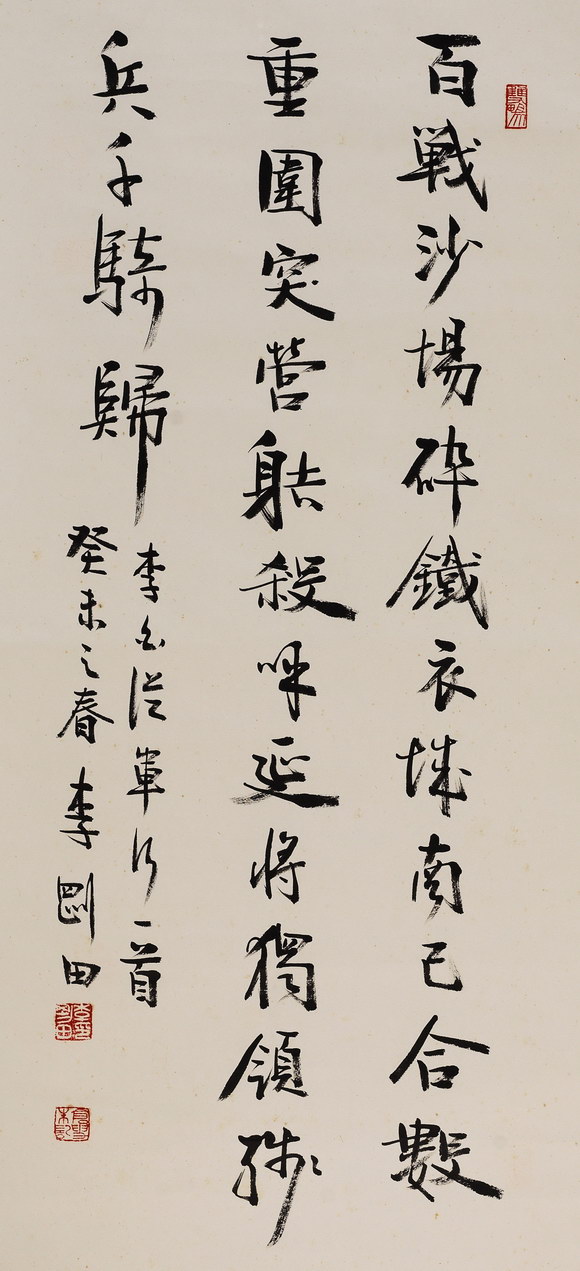 百戰沙場碎鐵衣城南已合數
重圍突營射殺呼延將獨領殘
兵千騎歸
李白從軍行一首
癸未之春李剛田